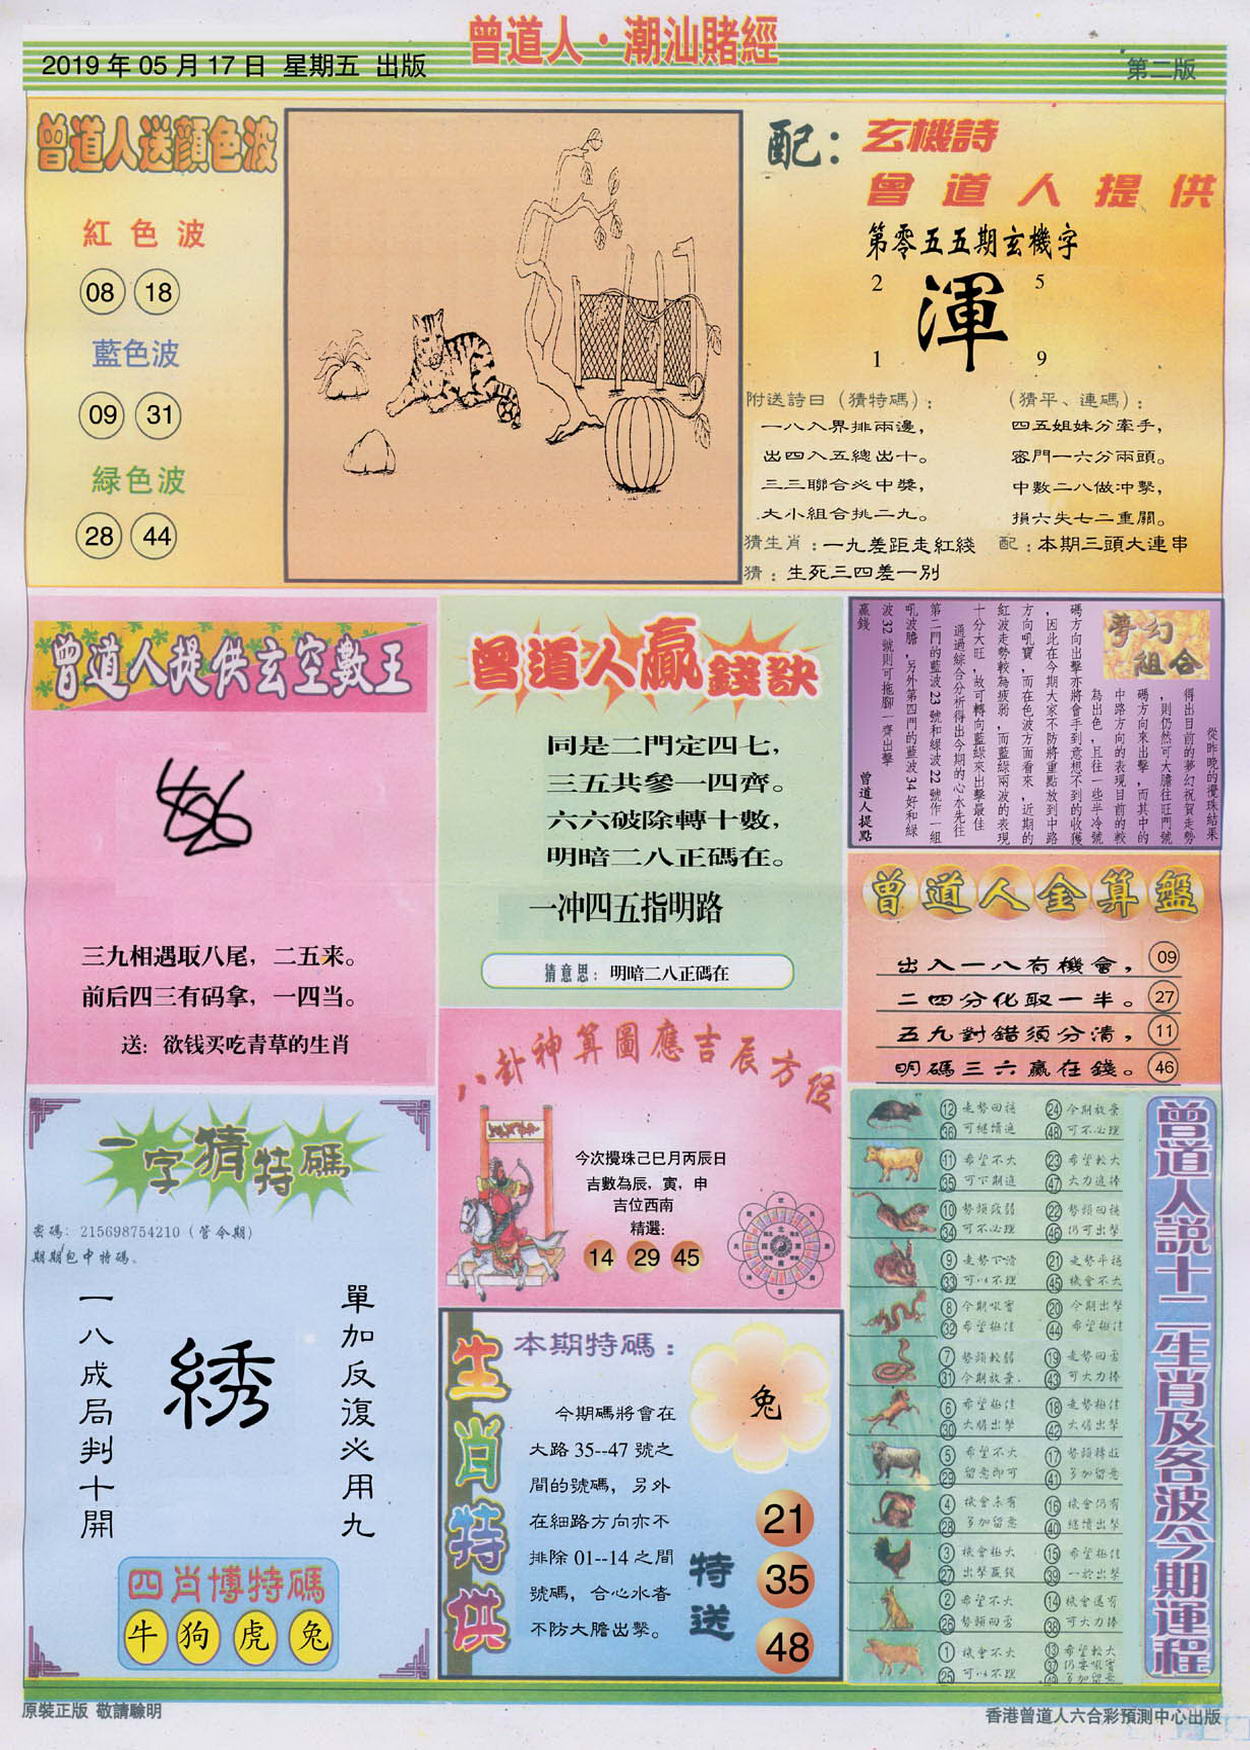 曾道人·潮汕賭經
2019年05月17日 星期五 出版
第二版
曾道人送顔色波
紅色波
08 18
藍色波
09 31
緑色波
28 44
配：玄機詩
曾道人提供
第零五五期玄機字
2 5
渾
1 9
附送詩曰（猜特碼）：
一八入界排兩邊，
出四入五總出十。
三三聯合必中獎，
大小組合挑二九。
（猜平、連碼）：
四五姐妹分牽手，
密門一六分兩頭。
中數二八做冲擊，
損六失七二重關。
猜生肖：一九差距走紅綫
配：本期三頭大連串
猜：生死三四差一別
曾道人提供玄空數王
三九相遇取八尾，二五来。
前后四三有码拿，一四当。
送：欲钱买吃青草的生肖
曾道人贏錢訣
同是二門定四七，
三五共參一四齊。
六六破除轉十數，
明暗二八正碼在。
一冲四五指明路
猜意思：明暗二八正碼在
夢幻
組合
從昨晚的攪珠結果
得出目前的夢幻祝賀走勢
，則仍然可大膽往旺門號
碼方向來出擊，而其中的
中路方向的表現目前的較
為出色，且往一些半冷號
碼方向出擊亦將會手到意想不到的收獲
，因此在今期大家不防將重點放到中路
方向吼寶，而在色波方面看來，近期的
紅波走勢較為疲弱，而藍綠兩波的表現
十分大旺，故可轉向藍綠來出擊最佳
通過綜合分析得出今期的心水先往
第二門的藍波23號和綠波22號作一組
吼波膽，另外第四門的藍波34好和綠
波32號則可拖腳一齊出擊
贏錢
曾道人提點
曾道人金算盤
出入一八有機會，09
二四分化取一半。27
五九對錯須分清，11
明碼三六贏在錢。46
八卦神算圖應吉辰方位
今次攪珠己巳月丙辰日
吉數為辰，寅，申
吉位西南
精選：
14 29 45
一字猜特碼
密碼：215698754210（管今期）
期期包中特碼。
單加反復必用九
綉
一八成局判十開
四肖博特碼
牛 狗 虎 兔
生肖特供
本期特碼：
兔
今期碼將會在
大路35--47號之
間的號碼，另外
在細路方向亦不
排除01--14之間
號碼，合心水者
不防大膽出擊。
特送
21
35
48
曾道人説十二生肖及各波今期運程
12 走勢回穩 24 今期放棄
36 可繼續追 48 可不必理
11 希望不大 23 希望較大
35 可下期追 47 大力追捧
10 勢頭疲弱 22 勢頭回穩
34 可不必理 46 仍可出擊
9 走勢下滑 21 走勢平穩
33 可以不理 45 機會不大
8 今期吼實 20 今期出擊
32 希望極佳 44 希望極佳
7 勢頭較弱 19 走勢回雷
31 今期放棄. 43 可大力捧
6 希望極佳 18 走勢極佳
30 大膽出擊 42 大膽出擊
5 希望不大 17 勢頭轉旺
29 留意即可 41 多加留意
4 機會未有 16 機會仍有
28 多加留意 40 繼續出擊
3 機會極大 15 希望極佳
27 出擊贏錢 39 一於出擊
2 希望不大 14 機會還有
26 勢頭回雷 38 可大力捧
1 機會不大 13 希望較大
25 可以不理 37 仍要吼實
49 多加留意
原裝正版 敬請驗明
香港曾道人六合彩預測中心出版